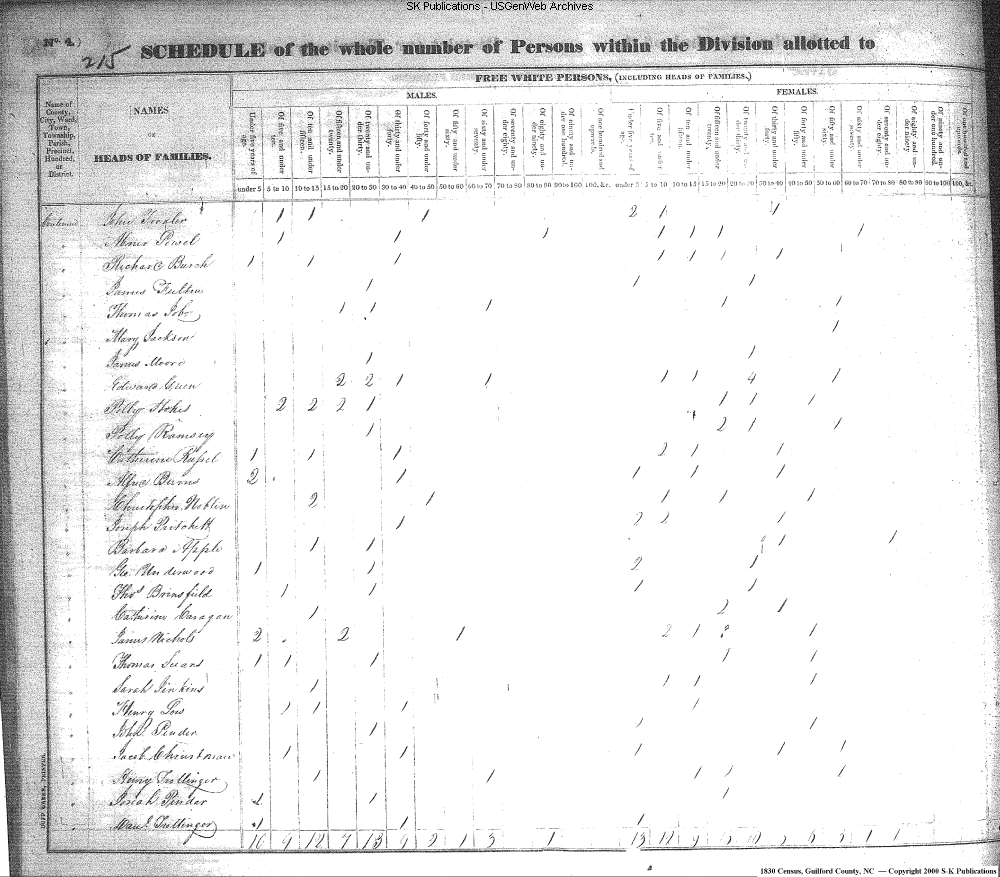 SK Publications - USGenWeb Archives
No. 4.)
215
SCHEDULE of the whole number of Persons within the Division allotted to
FREE WHITE PERSONS, (INCLUDING HEADS OF FAMILIES.)
MALES. FEMALES.
Name of County, City, Ward, Town, Township, Parish, Precinct, Hundred, or District.
NAMES
OF
HEADS OF FAMILIES.
Under five years of age. Of five and under ten. Of ten and under fifteen. Of fifteen and under twenty. Of twenty and under thirty. Of thirty and under forty. Of forty and under fifty. Of fifty and under sixty. Of sixty and under seventy. Of seventy and under eighty. Of eighty and under ninety. Of ninety and under one hundred. Of one hundred and upwards. Under five years of age. Of five and under ten. Of ten and under fifteen. Of fifteen and under twenty. Of twenty and under thirty. Of thirty and under forty. Of forty and under fifty. Of fifty and under sixty. Of sixty and under seventy. Of seventy and under eighty. Of eighty and under ninety. Of ninety and under one hundred. Of one hundred and upwards.
under 5 5 to 10 10 to 15 15 to 20 20 to 30 30 to 40 40 to 50 50 to 60 60 to 70 70 to 80 80 to 90 90 to 100 100, &c. under 5 5 to 10 10 to 15 15 to 20 20 to 30 30 to 40 40 to 50 50 to 60 60 to 70 70 to 80 80 to 90 90 to 100 100, &c.
John 1 1 1 2 1 1
Abner Powel 1 1 1 1 1 1 1
Richard Burch 1 1 1 1 1 1 1
James Fulton 1 1 1
Thomas Jobe 1 1 1 1 1
Mary Jackson 1
James Moore 1 1
Edward Green 2 2 1 1 1 1 4 1
Pilly Stokes 2 2 2 1 1 1 1
Polly Ramsey 1 2 1 1
Catherine Russel 1 1 1 2 1 1
Alfred Burns 2 1 1 1 1
Christopher Noblin 2 1 1 1 1
Joseph Pritchett 1 2 2 1
Barbara Apple 1 1 1 1
Geo. Underwood 1 1 2 1
Thos Brinsfield 1 1 1 1
Catherine Caragan 1 2 1
James Nichols 2 2 1 2 1 1
Thomas 1 1 1 1 1
Sarah Jenkins 1 1 1 1
Henry Low 1 1 1 1
John Pinder 1 1 1
Jacob Christman 1 1 1 1 1
Henry Trollinger 1 1 1 1 1
Josiah Pinder 1 1
1 1 1
10 9 12 7 13 9 2 1 3 1 13
DUFF GREEN, PRINTER.
1830 Census, Guilford County, NC — Copyright 2000 S-K Publications